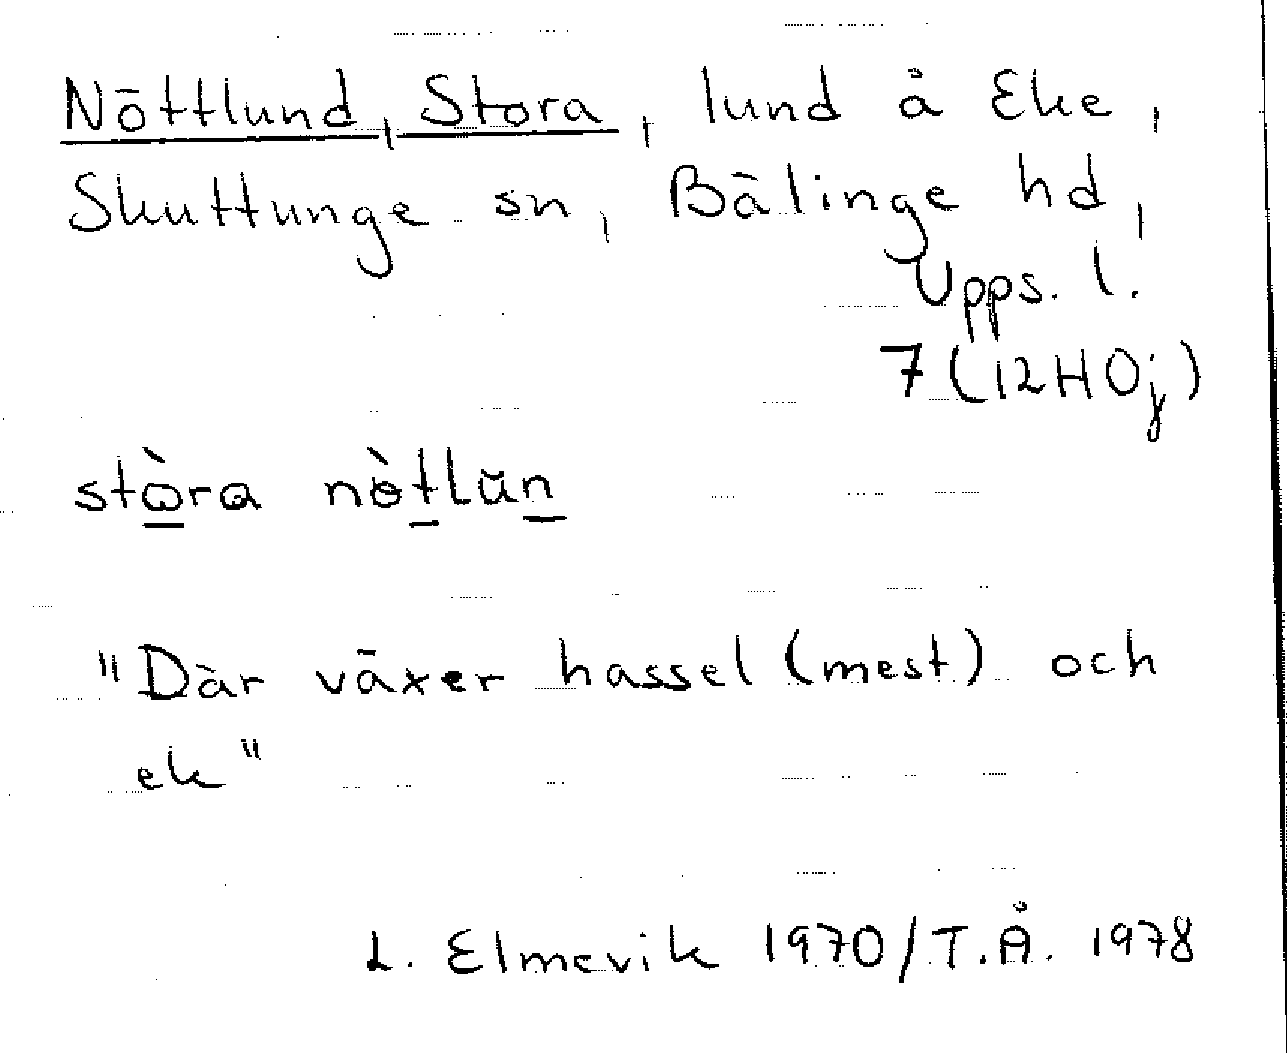 Nöttlund, Stora, lund å Eke,
Skuttunge sn, Bälinge hd,
Upps. l.
7 (12H0j)
stòra nòtlŭn
"Där växer hassel (mest) och
ek"
L. Elmevik 1970/T.Å. 1978